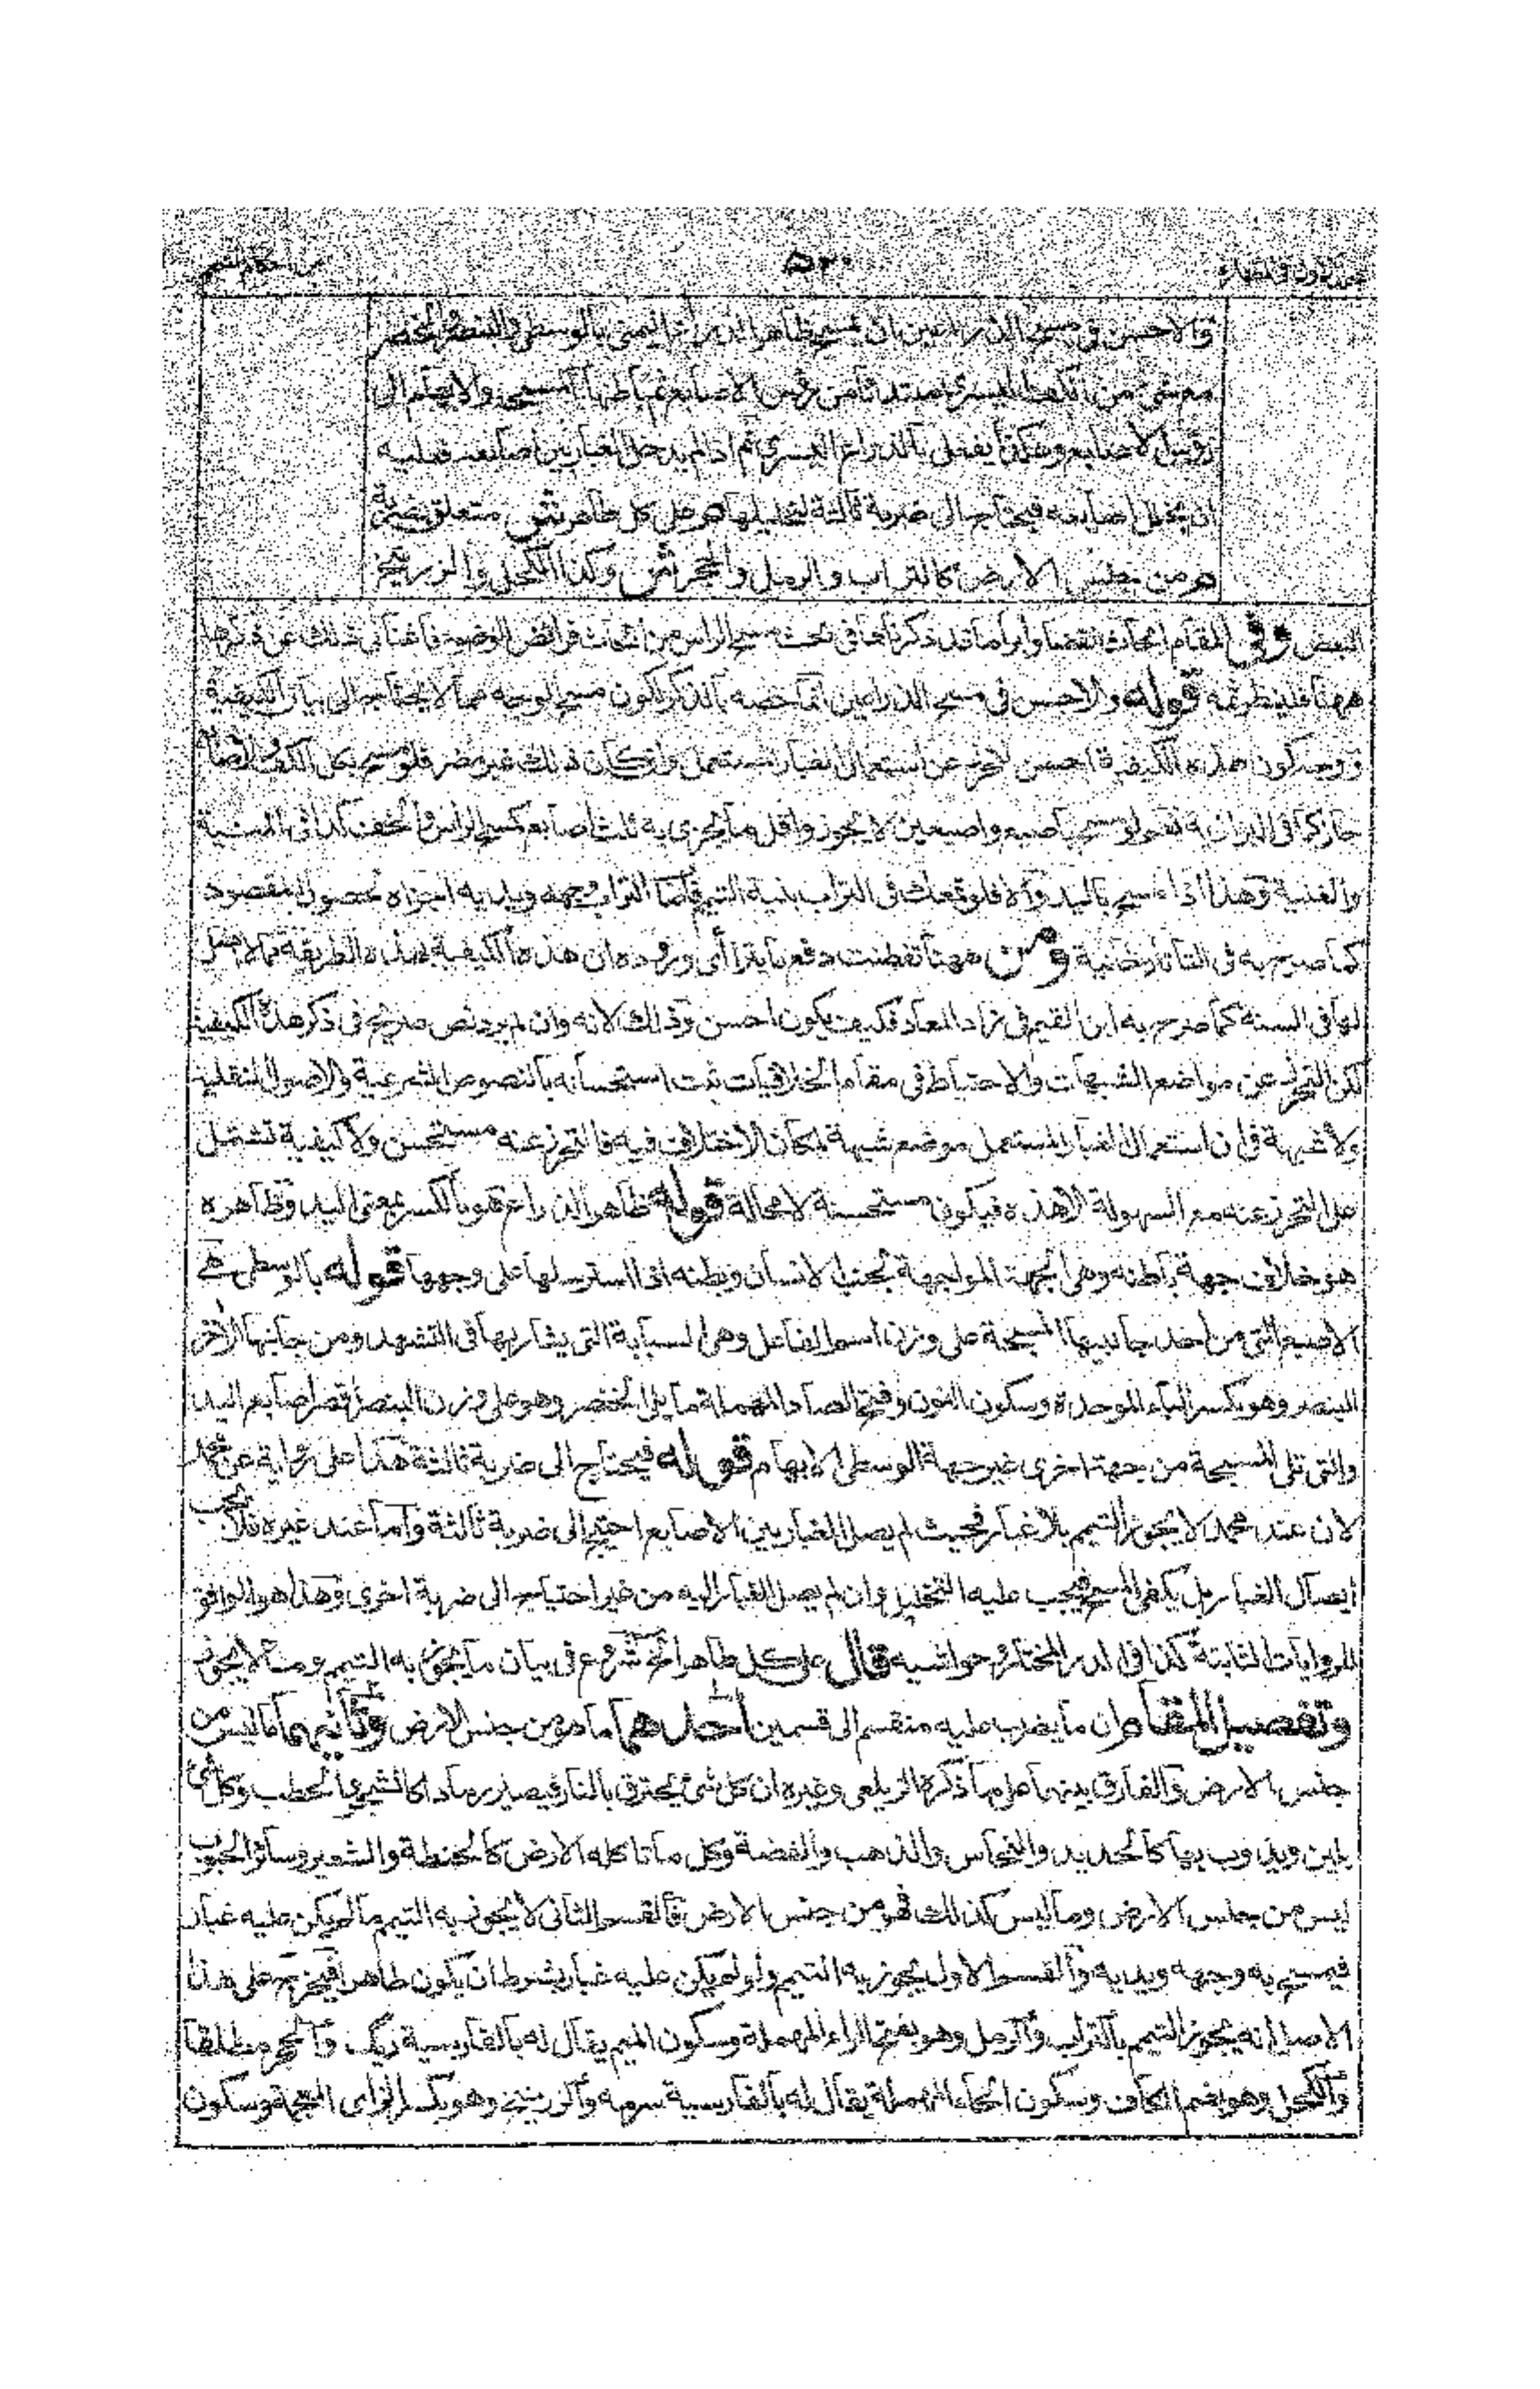 ٥٢٠
والاحسن في مسح الذراعين ان يمسح ظاهر الذراع اليمنى بالوسطى والبنصر والخنصر
مع شئ من الكف اليسرى مبتدئا من رؤس الاصابع ثم باطنها بالمسبحة والابهام الى
رؤس الاصابع وهكذا يفعل بالذراع اليسرى ثم اذا لم يدخل الغبار بين اصابعه فعليه
ان يخلل اصابعه فيحتاج الى ضربة ثالثة لتخليلها هو على كل طاهر ش متعلق بضربة
هو من جنس الارض كالتراب والرمل والحجر ش وكذا الكحل والزرنيخ
البعض وفي المقام ابحاث نقضا وابراما قد ذكرناها في بحث مسح الراس من ابحاث فرائض الوضوء فاغنانا ذلك عن ذكرها
ههنا فلينظر ثمه قوله والاحسن في مسح الذراعين انما خصه بالذكر لكون مسح الوجه مما لا يحتاج الى بيان الكيفية
ووجه كون هذه الكيفية احسن لتحرز عن استعمال الغبار المستعمل وان كان ذلك غير مضر فلو مسح بكل الكف والاصابع
جاز كما في البزازية نعم لو مسح باصبع واصبعين لا يجوز واقل ما يجزى به ثلث اصابع كمسح الراس والخف كذا في المنية
والغنية وهذا اذا مسح باليد والا فلو تمعك في التراب بنية التيمم فاصاب التراب وجهه ويديه اجزاه لحصول المقصود
كما صرح به في التاتارخانية ومن ههنا تفطنت دفع ما يتراأى وروده ان هذه الكيفية بهذه الطريقة مما لا اصل
لها في السنة كما صرح به ابن القيم في زاد المعاد فكيف يكون احسن وذلك لانه وان لم يرد نص صريح في ذكر هذه الكيفية
لكن التحرز عن مواضع الشبهات والاحتياط في مقام الخلافيات ثبت استحسانه بالنصوص الشرعية والاصول النقلية
ولا شبهة في ان استعمال الغبار المستعمل موضع شبهة لمكان الاختلاف فيه فالتحرز عنه مستحسن ولا كيفية تشتمل
على التحرز عنه مع السهولة الا هذه فيكون مستحسنة لا محالة قوله ظاهر الذراع هو بالكسر بمعنى اليد وظاهره
هو خلاف جهة باطنه وهي الجهة المواجهة لجنب الانسان وبطنه اذا استرسلها على وجهها قوله بالوسطى هي
الاصبع التي من احد جانبيها المسبحة على وزن اسم الفاعل وهي السبابة التي يشار بها في التشهد ومن جانبها الآخر
البنصر وهو بكسر الباء الموحدة وسكون النون وفتح الصاد المهملة ما يلي الخنصر وهو على وزن البنصر اقصر اصابع اليد
والتي تلي المسبحة من جهة اخرى غير جهة الوسطى الابهام قوله فيحتاج الى ضربة ثالثة هكذا على رواية عن محمد
لان عند محمد لا يجوز التيمم بلا غبار فحيث لم يصل الغبار بين الاصابع احتيج الى ضربة ثالثة واما عند غيره فلا يجب
ايصال الغبار بل يكفى المسح فيجب عليه التخليل وان لم يصل الغبار اليه من غير احتياج الى ضربة اخرى وهذا هو الموافق
للروايات الثابتة كذا في الدر المختار وحواشيه قال على كل طاهر الخ شرع في بيان ما يجوز به التيمم وما لا يجوز
وتفصيل المقام ان ما يضرب عليه منقسم الى قسمين احدهما ما هو من جنس الارض وثانيهما ما ليس من
جنس الارض والفارق بينهما على ما ذكره الزيلعي وغيره ان كل شئ يحترق بالنار فيصير رمادا كالشجر والحطب وكل شئ
يلين ويذوب بها كالحديد والنحاس والذهب والفضة وكل ما تاكله الارض كالحنطة والشعير وسائر الحبوب
ليس من جنس الارض وما ليس كذلك فهو من جنس الارض فالقسم الثاني لا يجوز به التيمم ما لم يكن عليه غبار
فيمسح به وجهه ويديه والقسم الاول يجوز به التيمم ولو لم يكن عليه غبار بشرط ان يكون طاهرا فيخرج على هذا
الاصل انه يجوز التيمم بالتراب والرمل وهو بفتح الراء المهملة وسكون الميم يقال له بالفارسية ريگ والحجر مطلقا
والكحل وهو بضم الكاف وسكون الحاء المهملة يقال له بالفارسية سرمه والزرنيخ وهو بكسر الزاى المعجمة وسكون